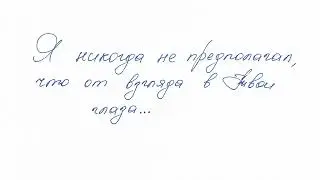 Я никогда не предполагал,
что от взгляда в Твои
глаза...